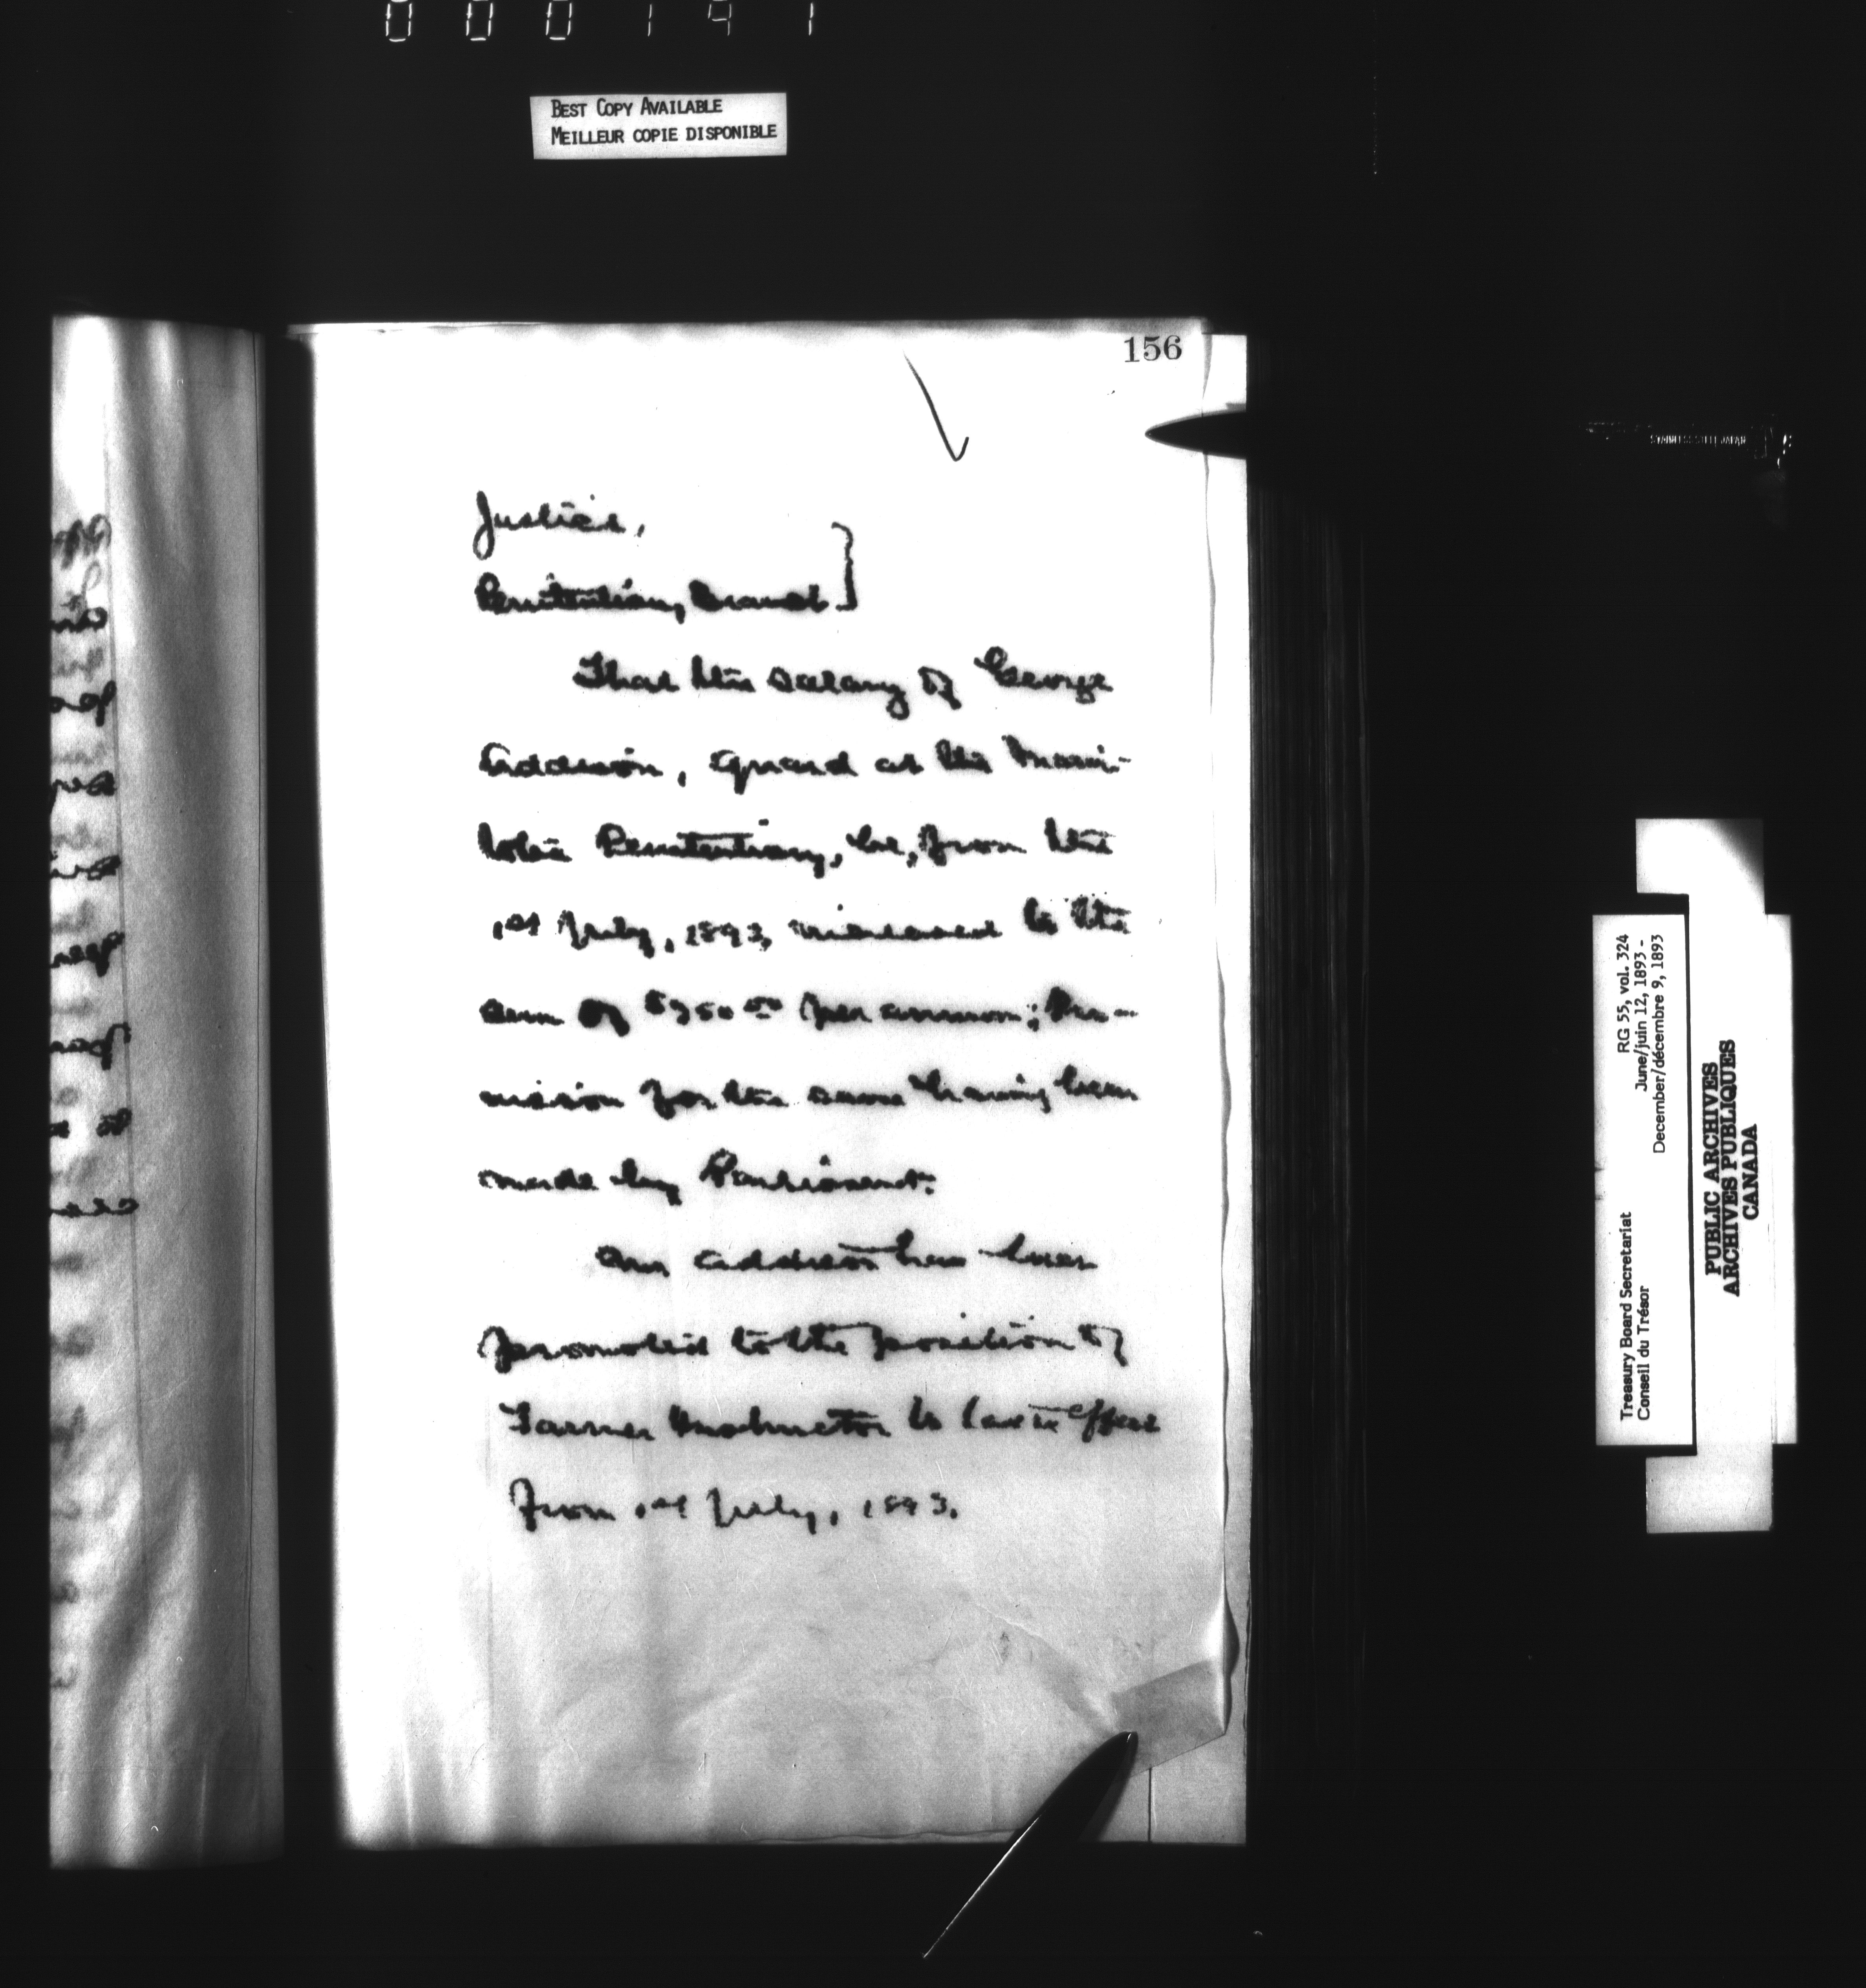 000191
BEST COPY AVAILABLE
MEILLEUR COPIE DISPONIBLE
156
Justice,
Penitentiary Branch
That the salary of George
Addison, Guard at the Mani-
toba Penitentiary, be, from the
1st July, 1893, increased to the
sum of $750 00 per annum; Pro-
vision for the same having been
made by Parliament.
Mr Addison has been
promoted to the position of
Farmer Instructor to take effect
from 1st July, 1893.
STAINLESS STEEL JAPAN
RG 55, vol. 324
June/juin 12, 1893 -
December/décembre 9, 1893
Treasury Board Secretariat
Conseil du Trésor
PUBLIC ARCHIVES
ARCHIVES PUBLIQUES
CANADA